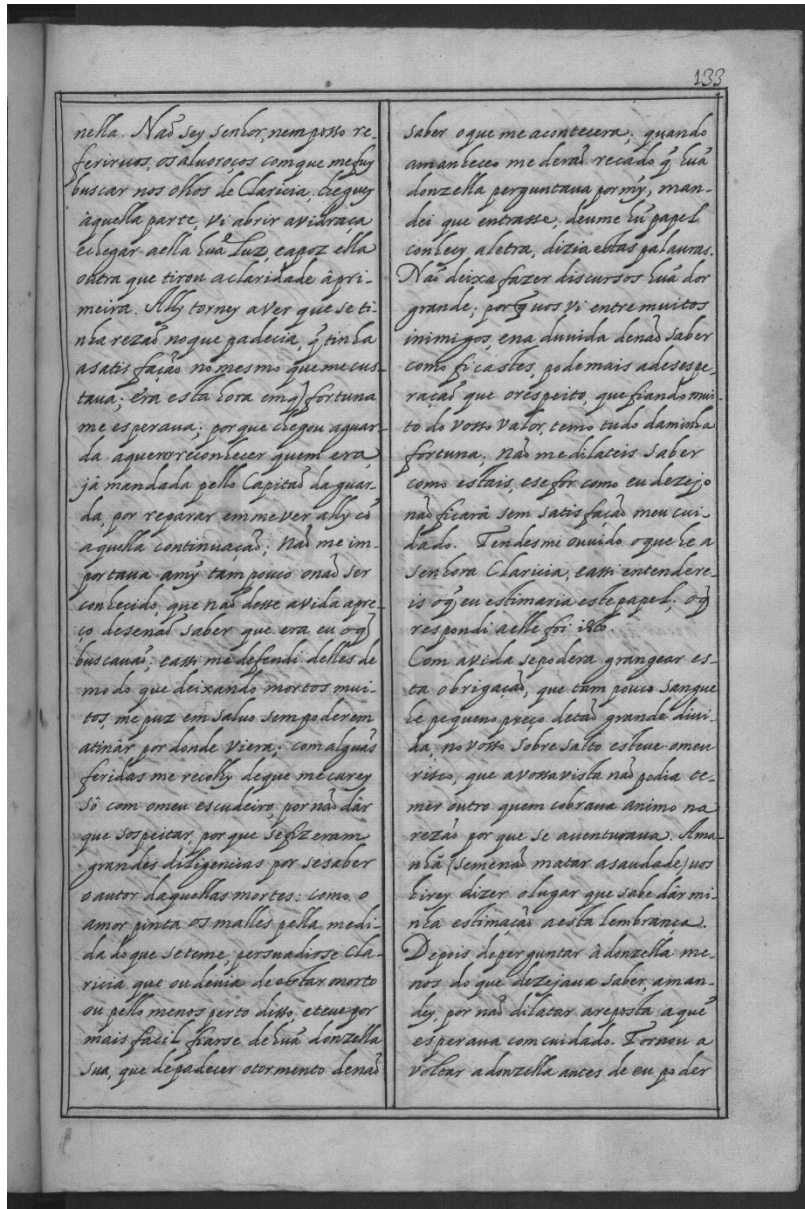 133
nella. Naõ sey senhor, nem posso re-
ferirvos, os alvoroços com que me fuy
buscar nos olhos de Claricia, cheguey
àquella parte, vi abrir a vidraça
e chegar a ella huã Luz, e apoz ella
outra que tirou a claridade â pri-
meira. Ally torney a ver que se ti-
nha rezaõ no que padecia, q̃ tinha
a satisfaçaõ no mesmo que me cus-
tava; era esta hora em q̃ fortuna
me esperava; porque chegou a guar-
da a querer reconhecer quem era,
jâ mandada pello Capitaõ da guar-
da, por reparar em me ver ally cõ
aquella continuaçaõ; Naõ me im-
portava a mỹ tam pouco o naõ ser
conhecido, que naõ desse a vida a pre-
ço de senaõ saber que era eu o q̃
buscavaõ; e assi me defendi delles de
modo que deixando mortos mui-
tos, me puz em salvo sem poderem
atinâr por donde viera; com alguãs
feridas me recolhy de que me curey
sô com o meu escudeiro, por naõ dâr
que sospeitar, por que se fizeram
grandes diligencias por se saber
o autor daquellas mortes: como o
amor pinta os malles pella medi-
da do que se teme, persuadiosse Cla-
ricia que ou devia de estar morto
ou pello menos perto disso, e teve por
mais facil fiarse de huã donzella
sua, que de padecer o tormento de naõ
saber o que me acontecera; quando
amanheceo me deraõ recado q̃ huã
donzella perguntava por mỹ, man-
dei que entrasse, deume hũ papel
conhecy a letra, dizia estas palavras.
Naõ deixa fazer discursos huã dor
grande; porq̃ vos vi entre muitos
inimigos, e na duvida de naõ saber
como ficastes, pode mais a desespe-
raçaõ que o respeito, que fiando mui-
to do vosso valor, temo tudo da minha
fortuna; naõ me dilateis saber
como estais, e se for como eu dezejo
naõ ficarâ sem satisfaçaõ meu cui-
dado. Tendesme ouvido o que he a
senhora Claricia, e assi entendere-
is o q̃ eu estimaria este papel; o q̃
respondi a elle foi isto.
Com a vida se podera grangear es-
ta obrigaçaõ, que tam pouco sangue
he pequeno preço de taõ grande divi-
da, no vosso sobresalto esteve o meu
risco, que a vossa vista naõ podia te-
mer outro quem cobrava animo na
rezaõ por que se aventurava. Ama-
nhã (se me naõ matar a saudade) vos
hirey dizer o lugar que sabe dâr mi-
nha estimaçaõ a esta lembrança.
Depois de perguntar â donzella me-
nos do que dezejava saber, a man-
dey, por naõ dilatar a reposta a quẽ
esperava com cuidado. Tornou a
voltar a donzella antes de eu poder